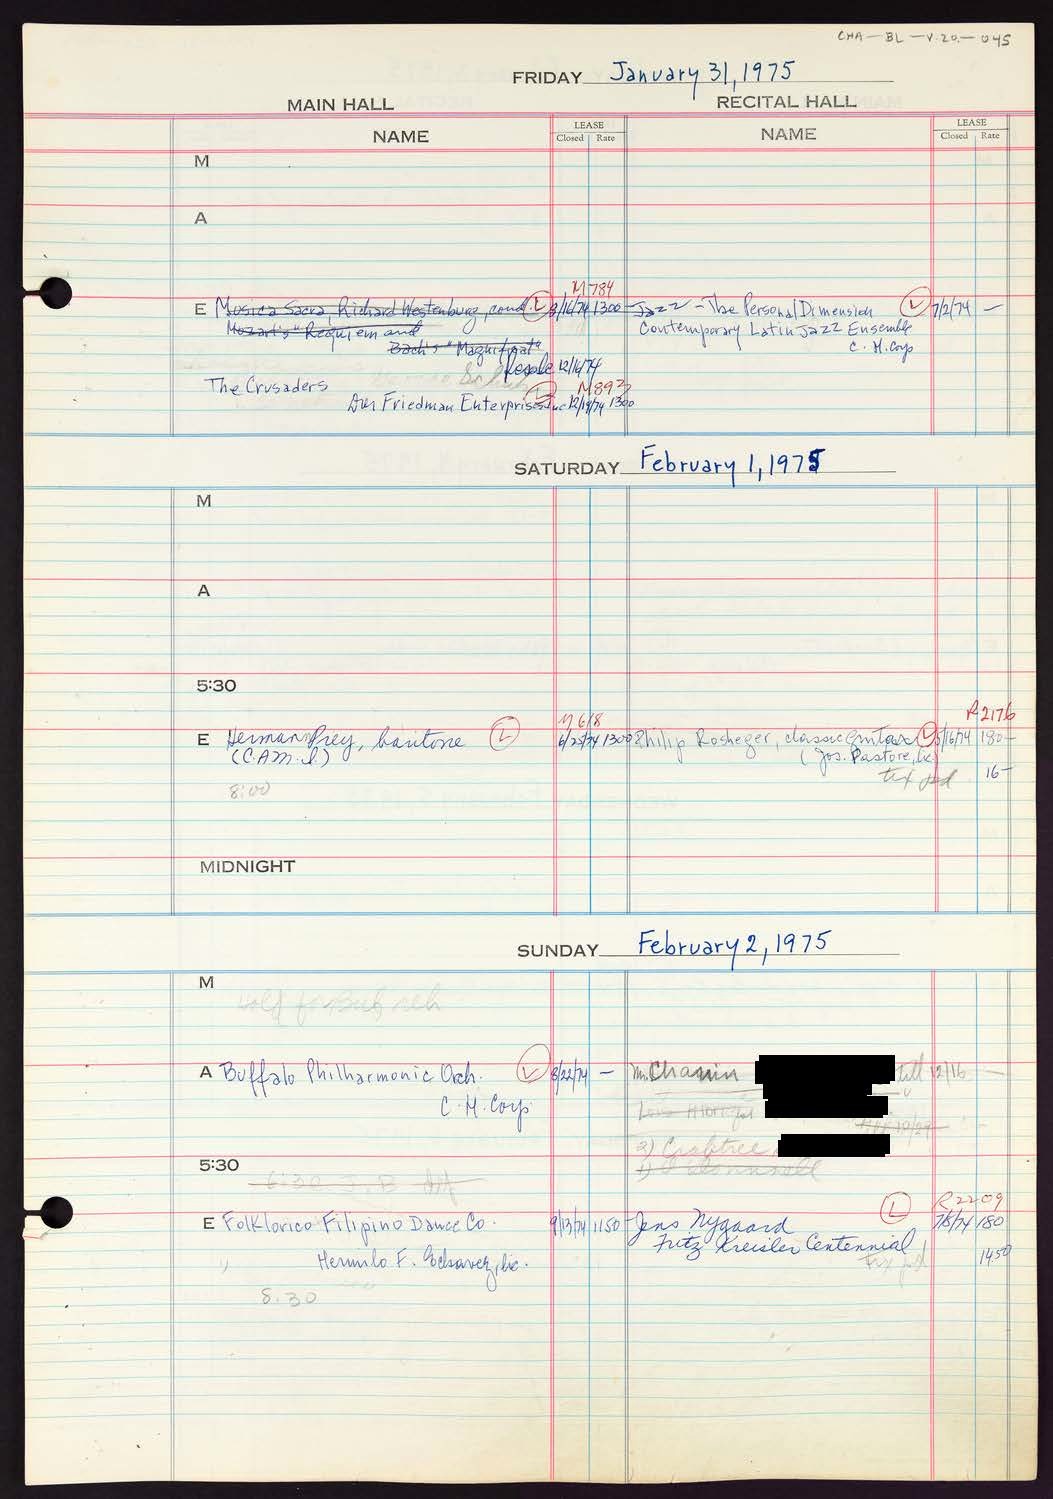 CHA-BL-V.20-045
FRIDAY January 31, 1975
MAIN HALL RECITAL HALL
NAME LEASE Closed Rate NAME LEASE Closed Rate
M
A
M784
E Musica Sacra, Richard Westenburg, cond. L 3/16/74 1300- Jazz - The Personal Dimension L 7/2/74 -
Mozart's "Requiem and Contemporary Latin Jazz Ensemble
Bach's "Magnificat" C.H. Corp
Resale 12/16/74
The Crusaders L M893
Friedman Enterprises Inc 12/19/74 1300
SATURDAY February 1, 1975
M
A
5:30
M618 R2176
E Herman Prey, baritone L 6/25/74 1300 Philip Rosheger, classic guitar L 5/16/74 180-
(C.A.M.I.) (Jos. Pastore, Inc.)
8:00 tix pd 16-
MIDNIGHT
SUNDAY February 2, 1975
M
Hold for Buf reh
A Buffalo Philharmonic Orch. L 8/22/74 - Mr. Chanin till 12/16 -
C.H. Corp
2) Crabtree
5:30
6:30 J.B.
L R2209
E Folklorico Filipino Dance Co. 9/13/74 1150- Jens Nygaard 7/8/74 180
" Hermilo F. Inc. Fritz Kreisler Centennial
tix pd 14.50
8:30